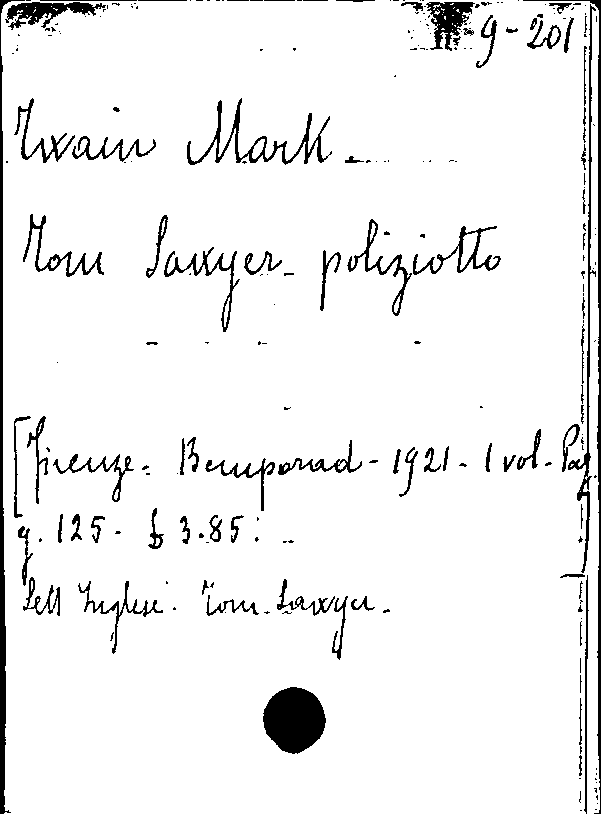 9-201
Twain Mark.
Tom Sawyer - poliziotto
[Firenze - Bemporad - 1921 - 1 vol - Pag
g. 125 - £ 3.85.]
Lett Inglese. Tom Sawyer.